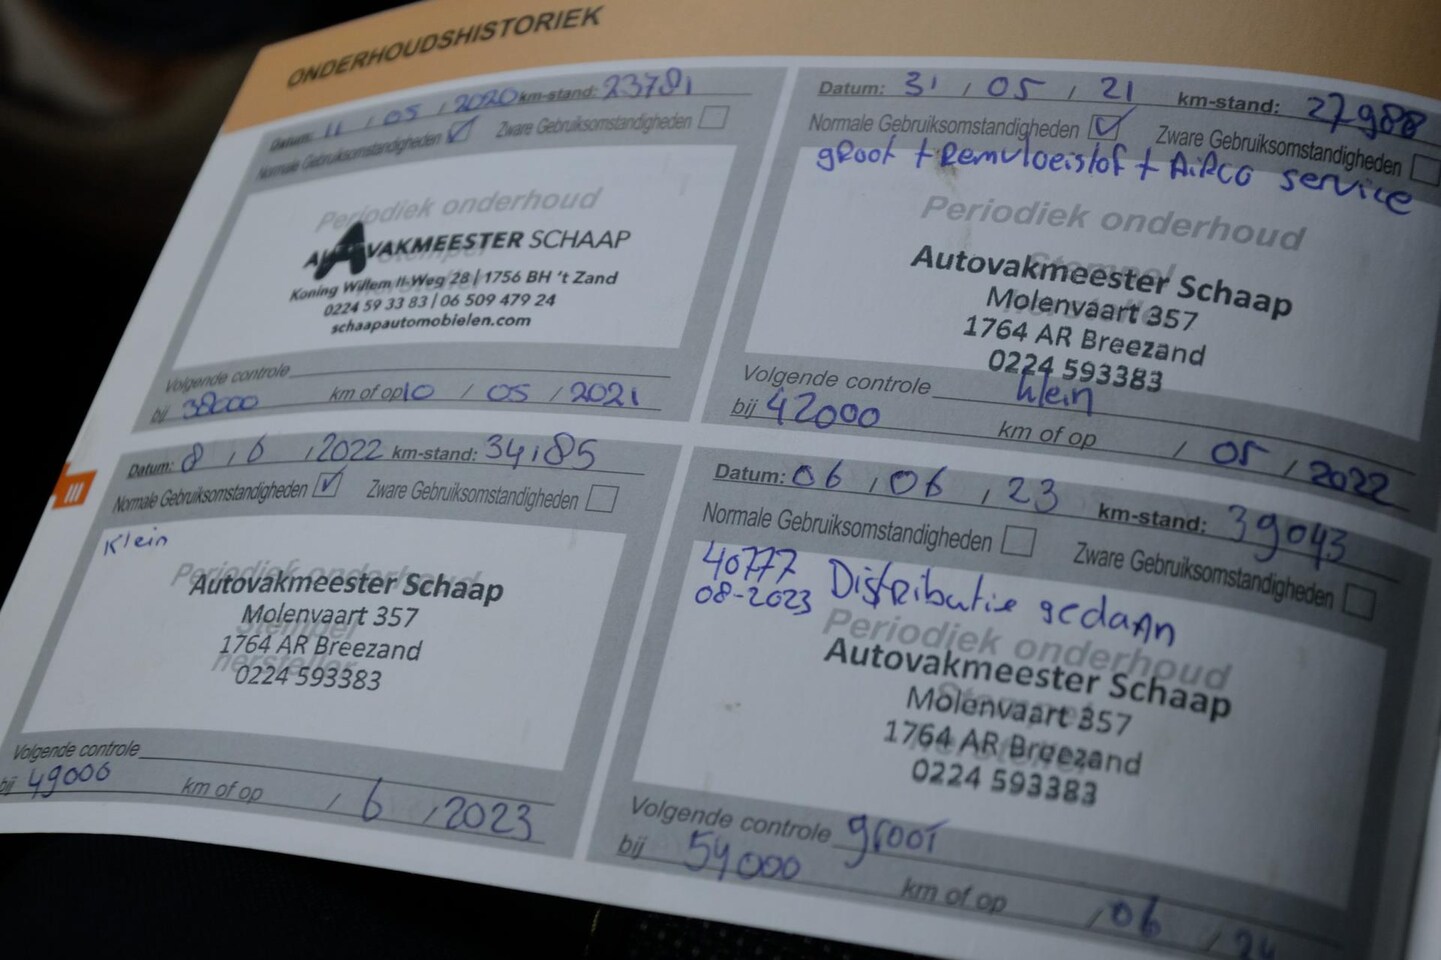 ONDERHOUDSHISTORIEK
Datum: 11 / 05 / 2020 km-stand: 23781
Normale Gebruiksomstandigheden ☑ Zware Gebruiksomstandigheden ☐
Periodiek onderhoud
Stempel
AUTOVAKMEESTER SCHAAP
Koning Willem II-Weg 28 | 1756 BH 't Zand
0224 59 33 83 | 06 509 479 24
schaapautomobielen.com
Volgende controle
bij 38000 km of op 10 / 05 / 2021
Datum: 31 / 05 / 21 km-stand: 27988
Normale Gebruiksomstandigheden ☑ Zware Gebruiksomstandigheden ☐
groot + Remvloeistof + Airco service
Periodiek onderhoud
Stempel
hersteller
Autovakmeester Schaap
Molenvaart 357
1764 AR Breezand
0224 593383
Volgende controle klein
bij 42000 km of op / 05 / 2022
III
Datum: 8 / 6 / 2022 km-stand: 34185
Normale Gebruiksomstandigheden ☑ Zware Gebruiksomstandigheden ☐
Klein
Periodiek onderhoud
Stempel
hersteller
Autovakmeester Schaap
Molenvaart 357
1764 AR Breezand
0224 593383
Volgende controle
bij 49000 km of op / 6 / 2023
Datum: 06 / 06 / 23 km-stand: 39043
Normale Gebruiksomstandigheden ☐ Zware Gebruiksomstandigheden ☐
40777 Distributie gedaan
08-2023
Periodiek onderhoud
Stempel
hersteller
Autovakmeester Schaap
Molenvaart 357
1764 AR Breezand
0224 593383
Volgende controle groot
bij 54000 km of op / 06 / 24